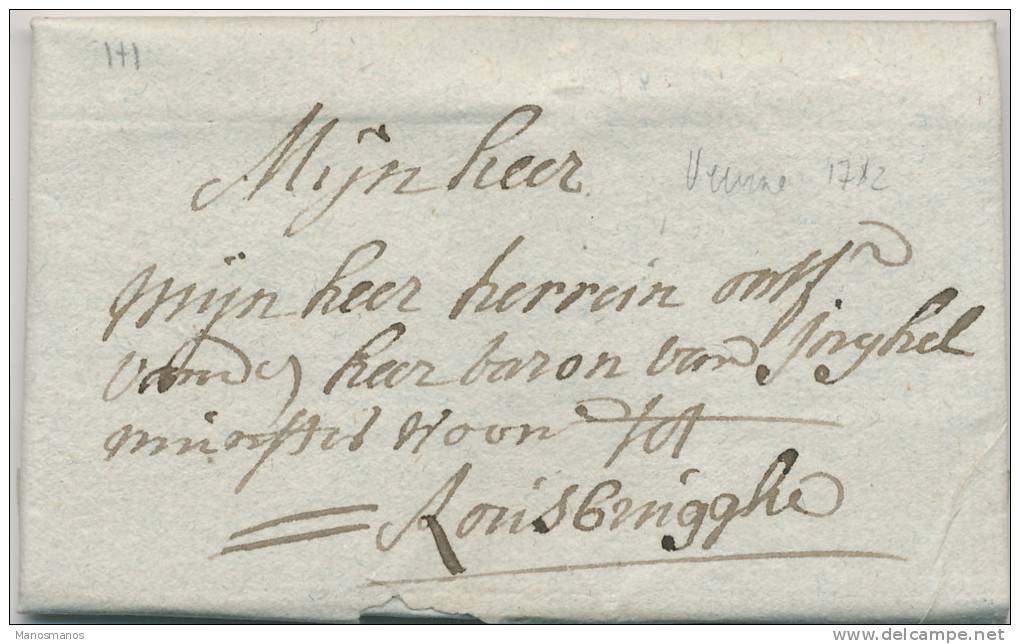 1+1
Mijn heer
Veurne 1782
mijn heer herrein ontf^r
vanden heer baron van Jnghel
munster woon tot
Rousbrugghe
Manosmanos
www.delcampe.net